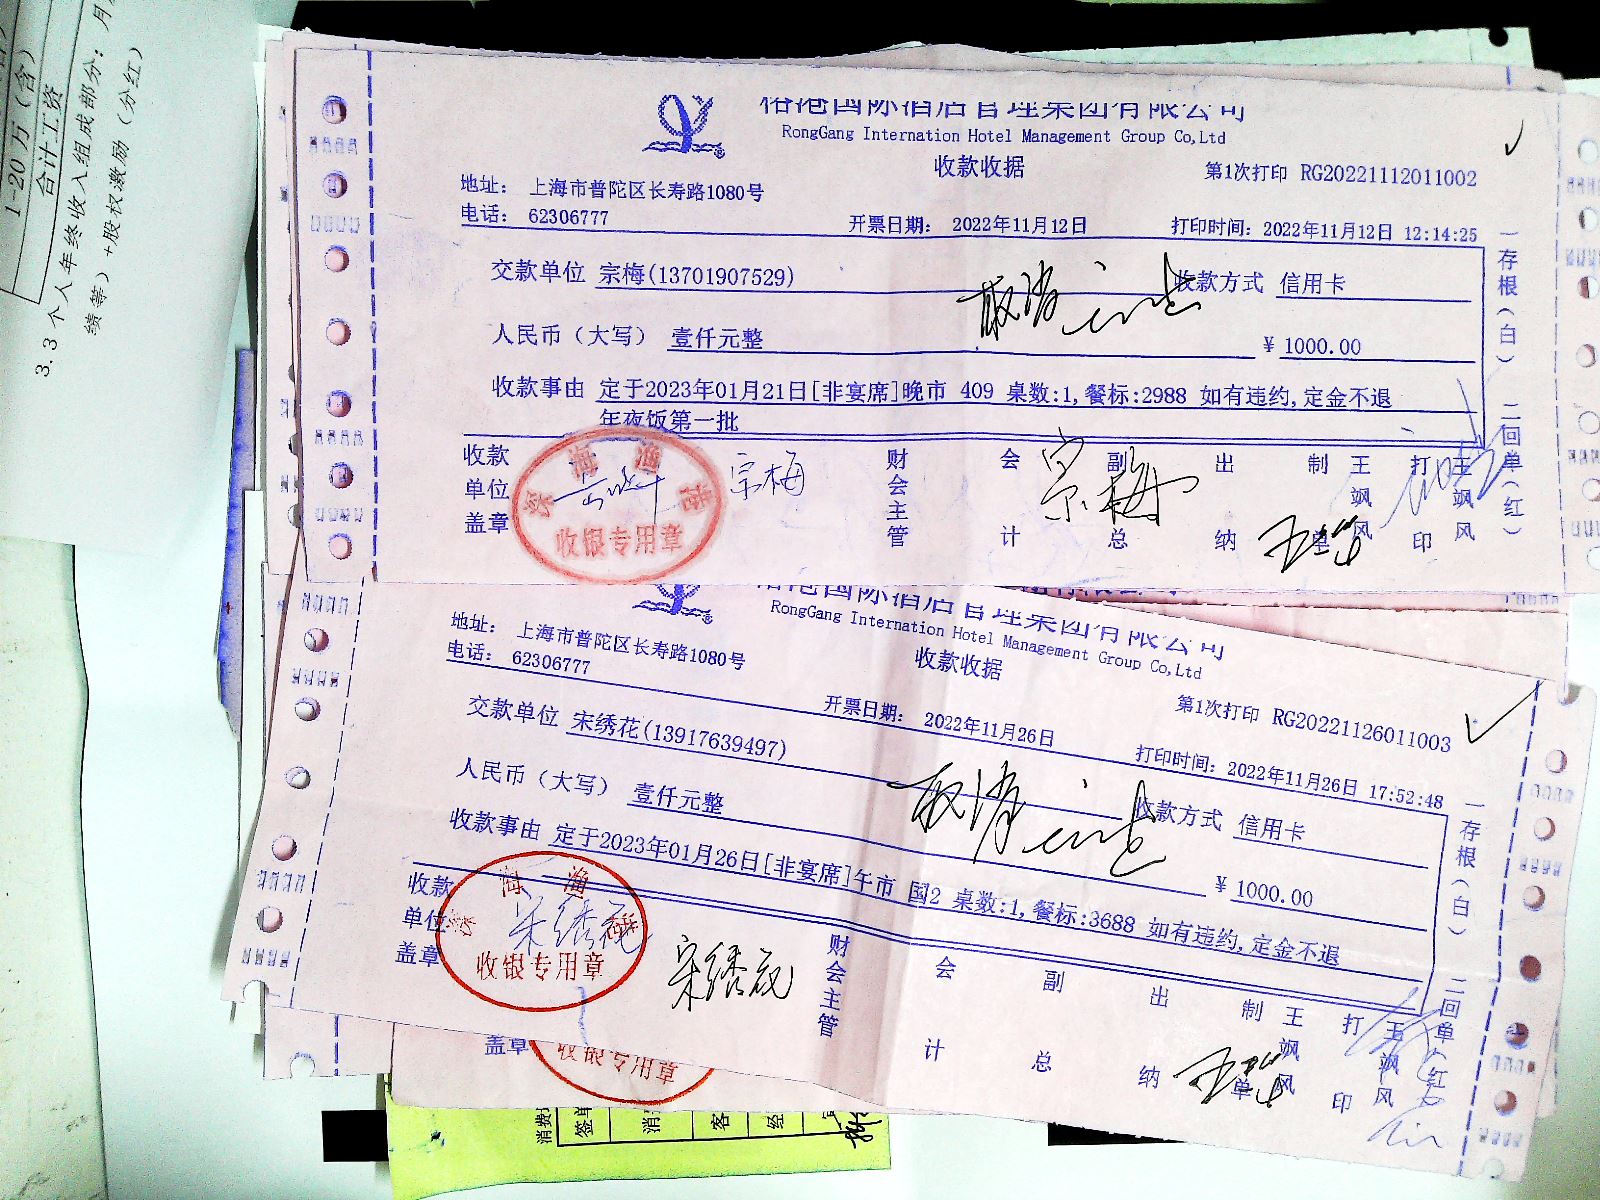 1-20万(含)
合计工资
3.3 个人年终收入组成部分：月
绩等）+股权激励（分红）
榕港国际酒店管理集团有限公司
RongGang Internation Hotel Management Group Co,Ltd
收款收据
第1次打印 RG20221112011002
地址： 上海市普陀区长寿路1080号
电话： 62306777
开票日期： 2022年11月12日
打印时间：2022年11月12日 12:14:25
交款单位 宗梅(13701907529)
取消
收款方式 信用卡
人民币（大写） 壹仟元整
¥ 1000.00
收款事由 定于2023年01月21日[非宴席]晚市 409 桌数:1,餐标:2988 如有违约,定金不退
年夜饭第一批
一存根(白) 二回单(红)
收款单位盖章
深海渔港
收银专用章
宗梅
财会主管
会计
副总
宗梅
出纳
制单
王飒风
打印
王飒风
榕港国际酒店管理集团有限公司
RongGang Internation Hotel Management Group Co,Ltd
收款收据
第1次打印 RG20221126011003
地址： 上海市普陀区长寿路1080号
电话： 62306777
开票日期： 2022年11月26日
打印时间：2022年11月26日 17:52:48
交款单位 宋绣花(13917639497)
取消
收款方式 信用卡
人民币（大写） 壹仟元整
¥ 1000.00
收款事由 定于2023年01月26日[非宴席]午市 国2 桌数:1,餐标:3688 如有违约,定金不退
一存根(白) 二回单(红)
收款单位盖章
深海渔港
宋绣花
收银专用章
宋绣花
财会主管
会计
副总
出纳
制单
王飒风
打印
王飒风
盖章
收银专用章
消费
签单
消
客
经